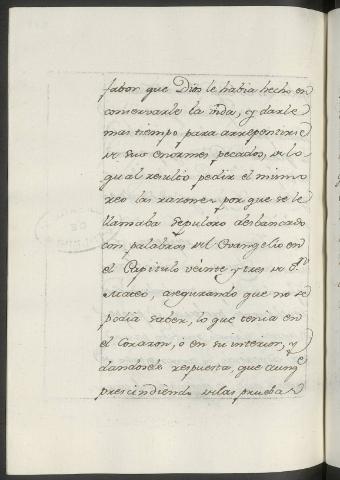 fabor que Dios le habia hecho en
conservarle la vida, y darle
mas tiempo para arrepentirse
de sus enormes pecados, de lo
qual resultó pedir el mismo
reo las razones por que se le
llamaba Sepulcro desbancado
con palabras del Evangelio en
el Capitulo veinte y tres de Sn.
Mateo, asegurando que no se
podia saber, lo que tenia en
el Corazon, ó en su interior, y
dandosele respuesta, que aunqe.
prescindiendo delas prueba